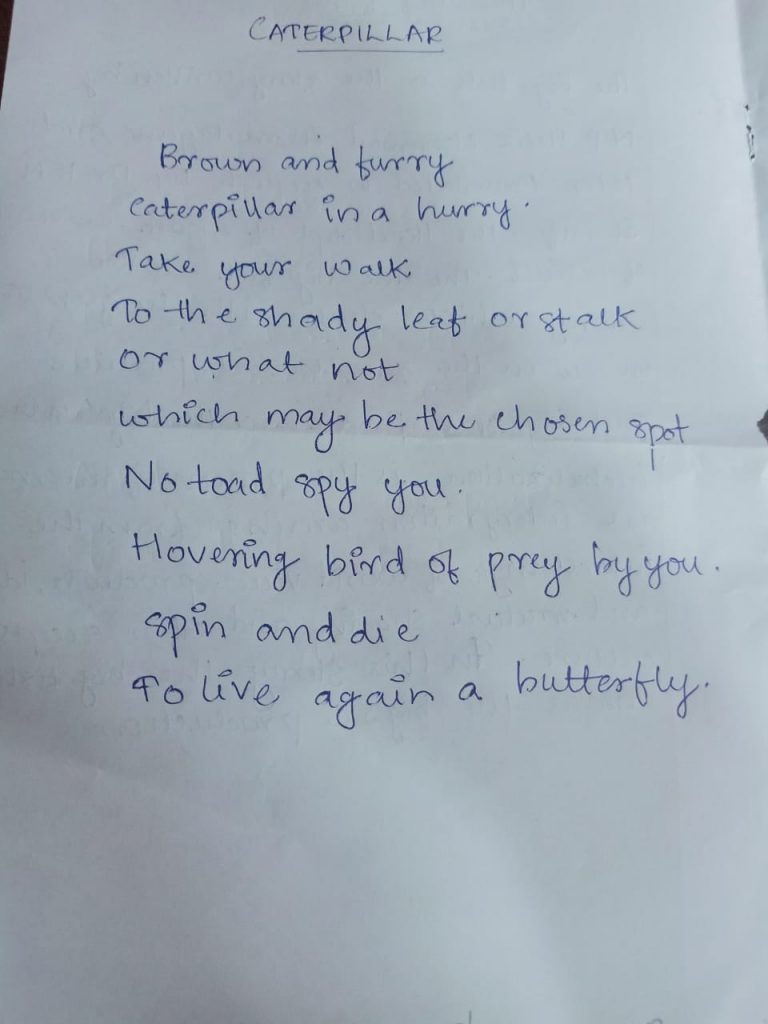 CATERPILLAR
Brown and furry
Caterpillar in a hurry.
Take your walk
To the shady leaf or stalk
or what not
which may be the chosen spot
No toad spy you.
Hovering bird of prey by you.
spin and die
To live again a butterfly.